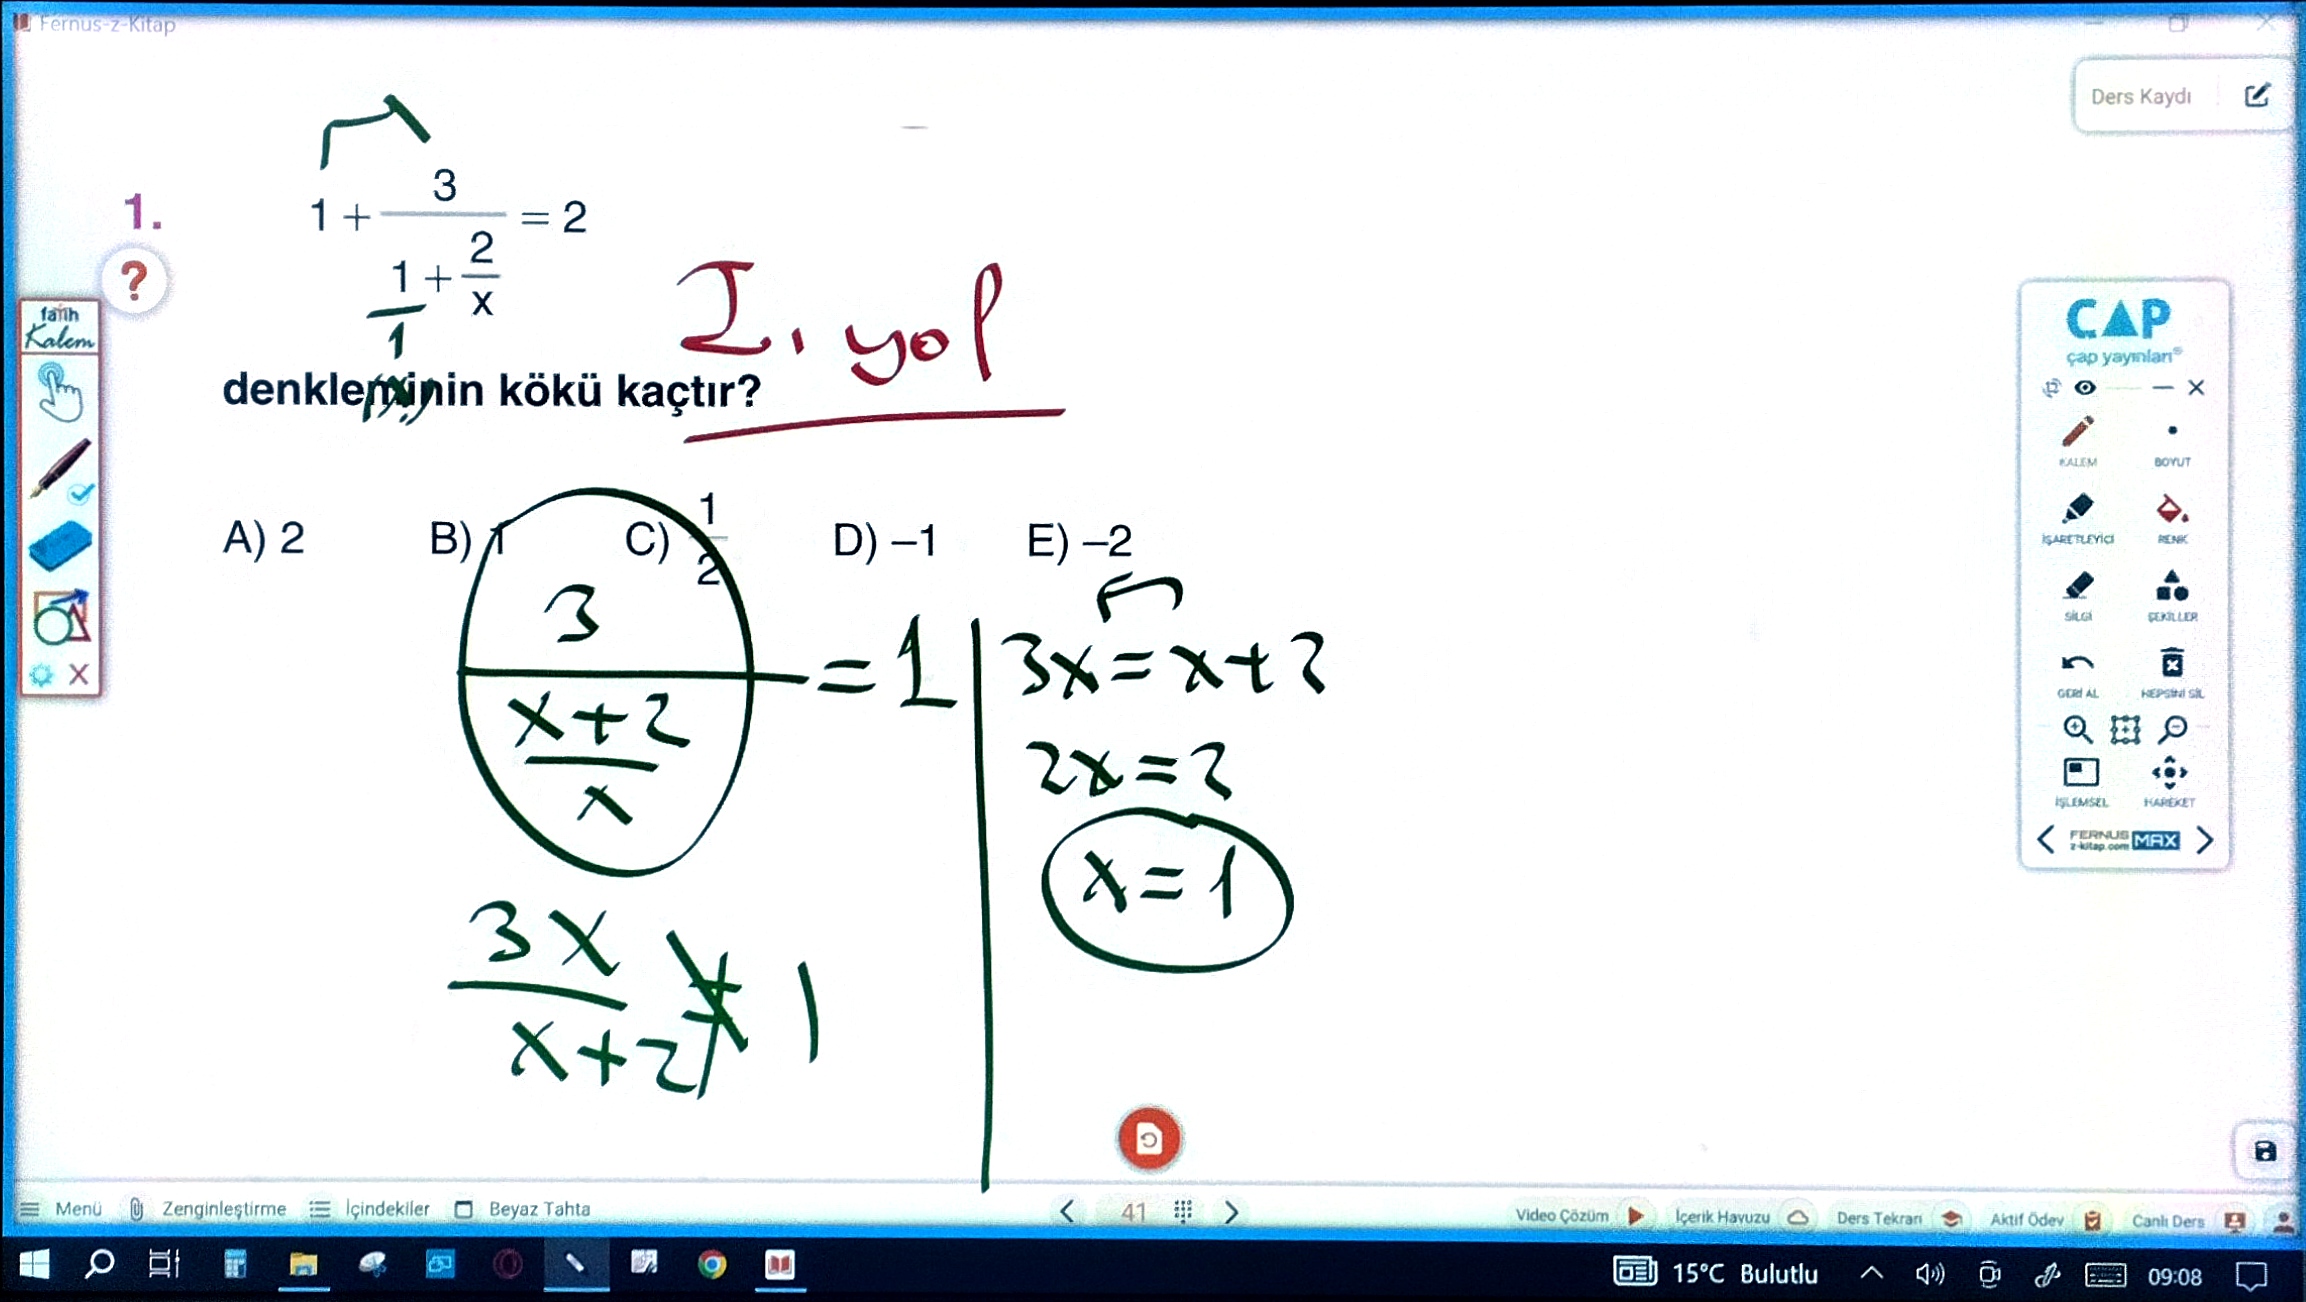 Fernus-z-Kitap
Ders Kaydı
1.
1 + 3 / (1 + 2/x) = 2
1
(x)
denkleminin kökü kaçtır?
I. yol
A) 2 B) 1 C) 1/2 D) –1 E) –2
3 / ((x+2)/x) = 1
3x / (x+2) = 1
3x = x+2
2x = 2
x = 1
?
fatih
Kalem
CAP
çap yayınları®
KALEM BOYUT
İŞARETLEYİCİ RENK
SİLGİ ŞEKİLLER
GERİ AL HEPSİNİ SİL
İŞLEMSEL HAREKET
FERNUS
z-kitap.com MAX
Menü Zenginleştirme İçindekiler Beyaz Tahta 41 Video Çözüm İçerik Havuzu Ders Tekrarı Aktif Ödev Canlı Ders
15°C Bulutlu 09:08